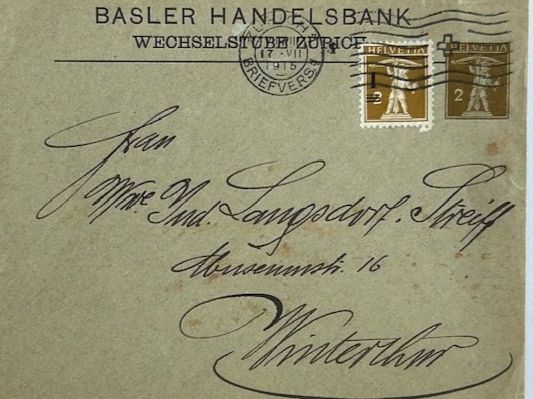 BASLER HANDELSBANK
WECHSELSTUBE ZÜRICH
ZÜRICH
17·VII
1915
BRIEFVERS.
HELVETIA
1
2
HELVETIA
2
Frau
Wwe. Ind. Langsdorf-Streiff
Museumstr. 16
Winterthur